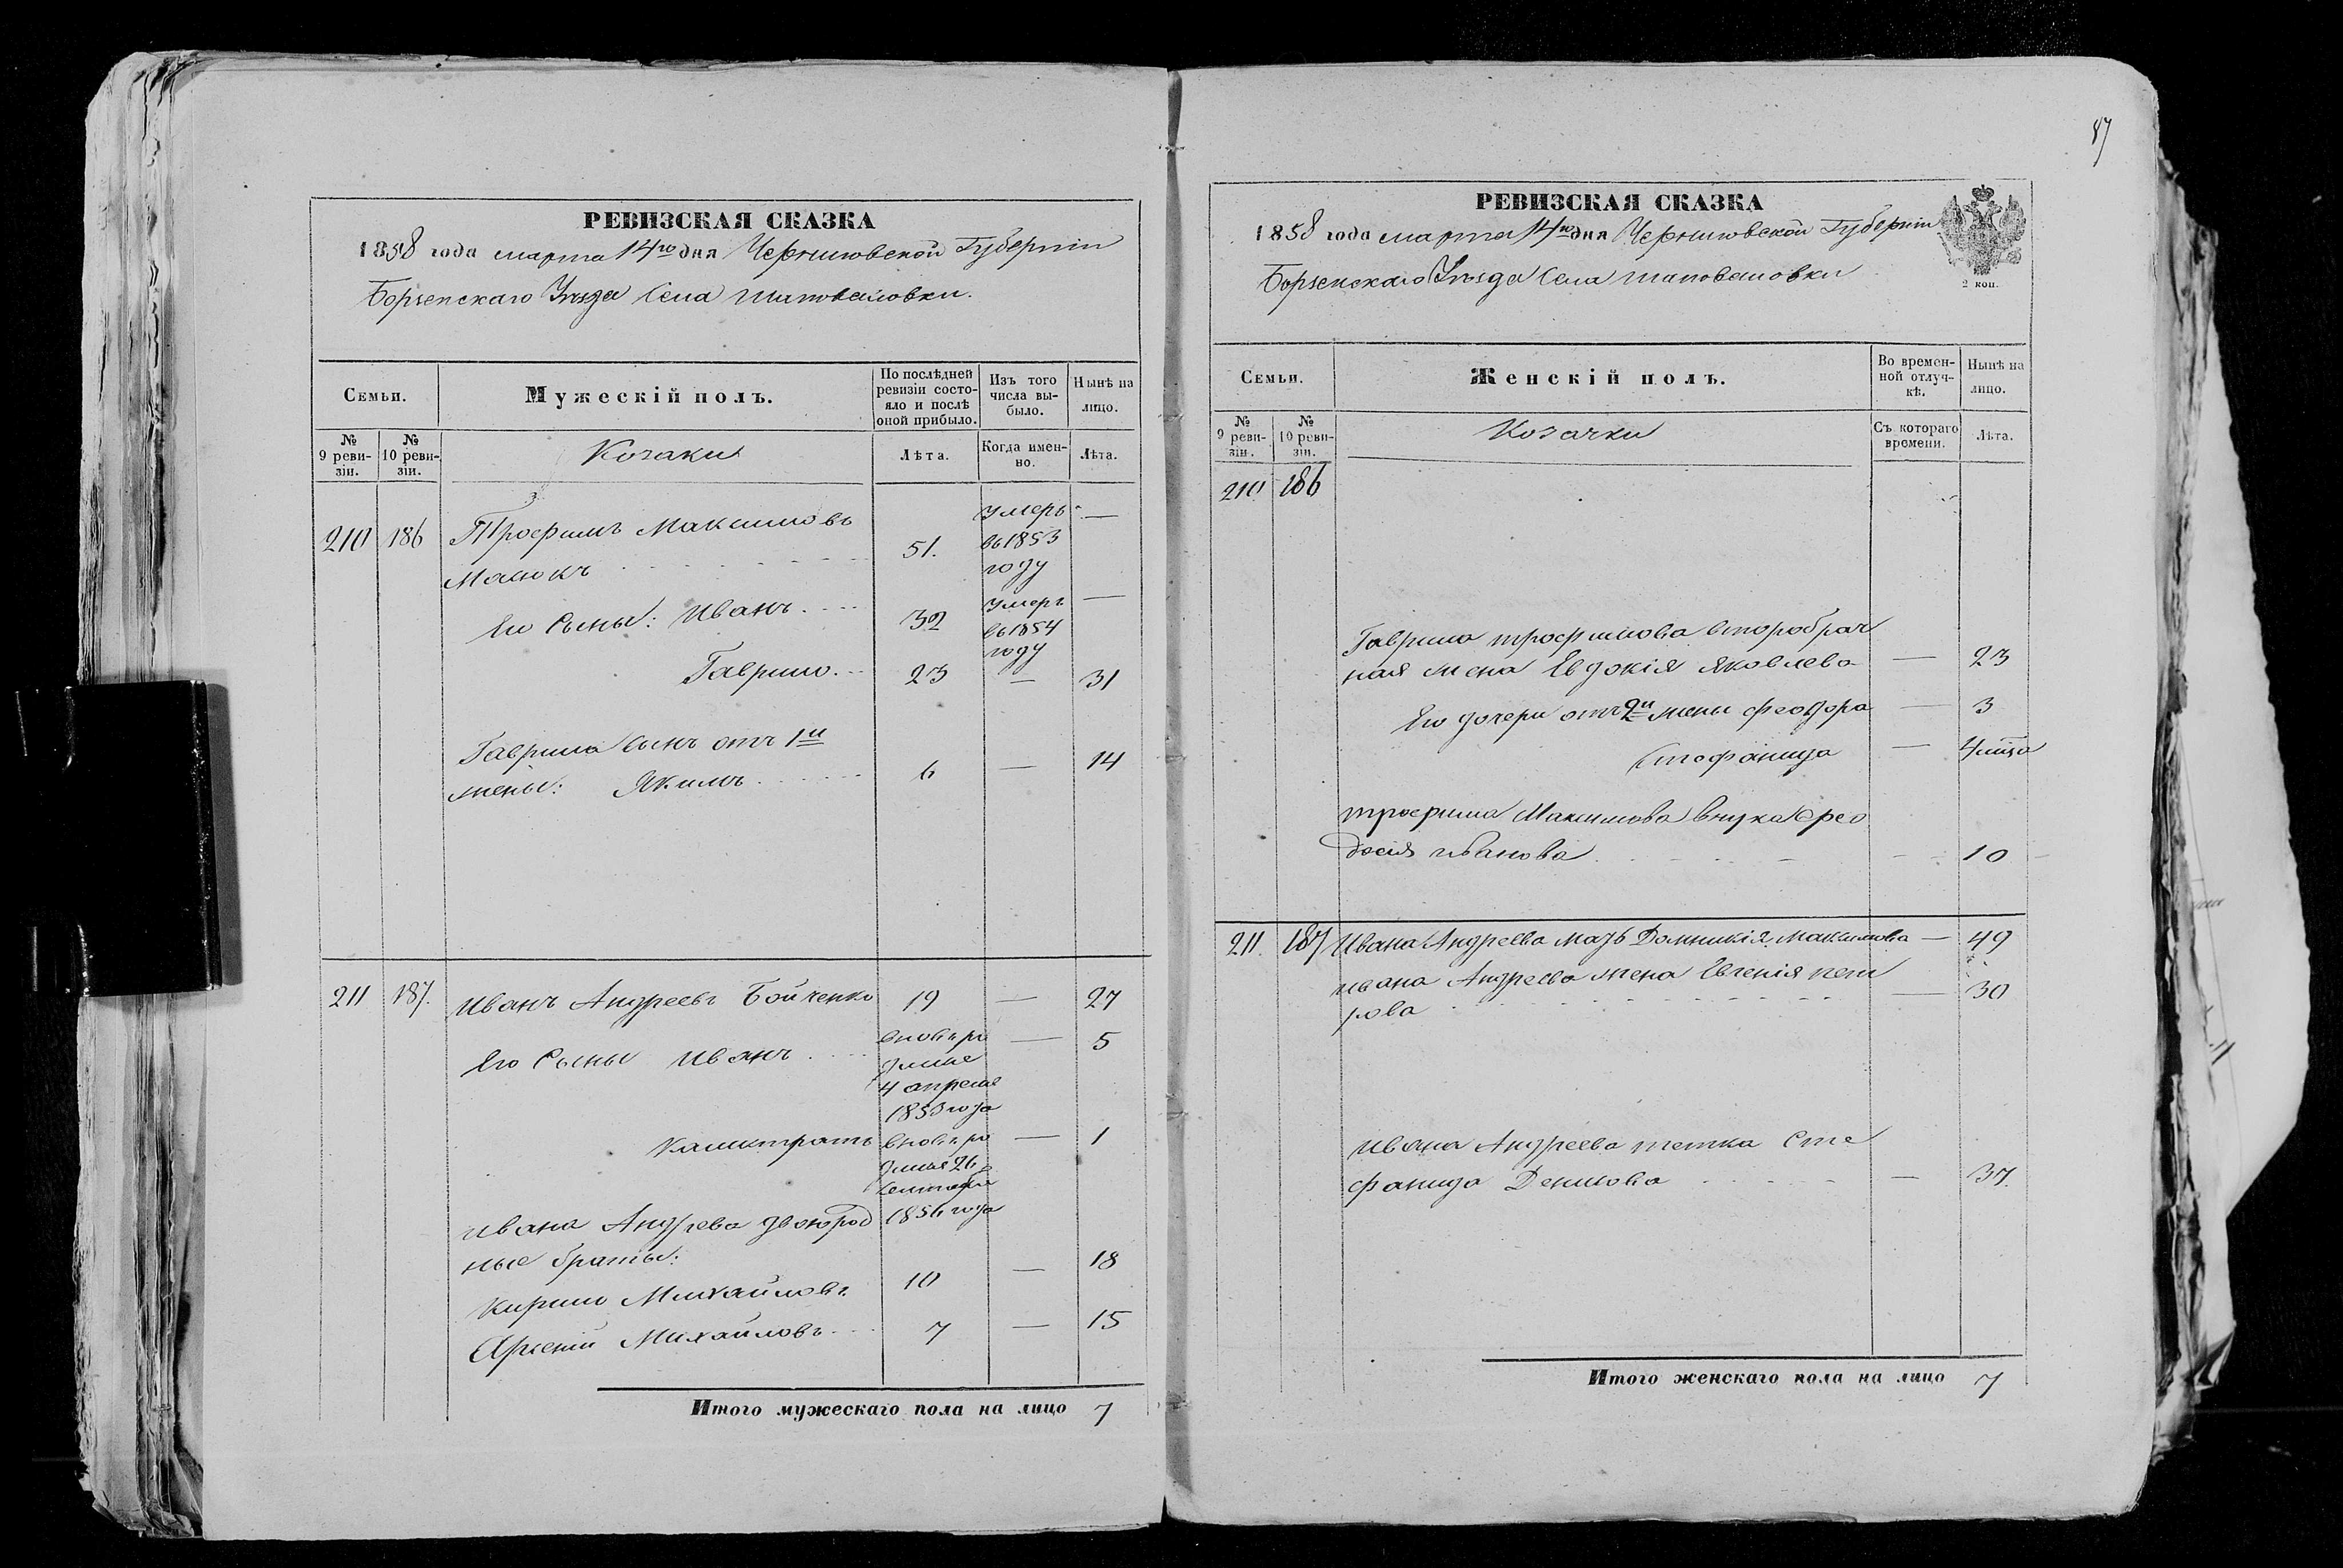 87
РЕВИЗСКАЯ СКАЗКА
1858 года марта 14го дня Черниговской Губерніи
Борзенскаго Уѣзда Села Шаповаловки.
Семьи.
Мужескій полъ.
По послѣдней ревизіи состояло и послѣ оной прибыло.
Изъ того числа выбыло.
Нынѣ на лицо.
№ 9 ревизіи.
№ 10 ревизіи.
Козаки
Лѣта.
Когда именно.
Лѣта.
210 186 Трофимъ Максимовъ
Масюкъ 51. Умеръ въ 1853 году —
Его Сыны: Иванъ 32 Умеръ въ 1854 году —
Гаврило 23 — 31
Гаврила сынъ отъ 1й
жены: Якимъ 6 — 14
211 187. Иванъ Андреевъ Бойченко 19 — 27
Его Сыны Иванъ вновь ро — 5
дился
4 апреля
1853 года
Калистратъ вновь ро — 1
дился 26
Сентября
1856 года
Ивана Андреева двоюрод
ные браты:
Кирило Михайловъ 10 — 18
Арсеній Михайловъ 7 — 15
Итого мужескаго пола на лицо 7
РЕВИЗСКАЯ СКАЗКА
1858 года марта 14го дня Черниговской Губерніи
Борзенскаго Уѣзда Села Шаповаловки
2 коп.
Семьи.
Женскій полъ.
Во временной отлучкѣ.
Нынѣ на лицо.
№ 9 ревизіи.
№ 10 ревизіи.
Козачки
Съ котораго времени.
Лѣта.
210 186
Гаврила Трофимова второбрач
ная жена Евдокія Яковлева — 23
Его дочери отъ 2й жены Феодора — 3
Стефанида — 4 мѣца
Трофима Максимова внука Фео
досія Иванова 10
211. 187 Ивана Андреева мать Домникія Максимова — 49
Ивана Андреева жена Евгенія Пет
рова — 30
Ивана Андреева тетка Сте
фанида Денисова — 37.
Итого женскаго пола на лицо 7